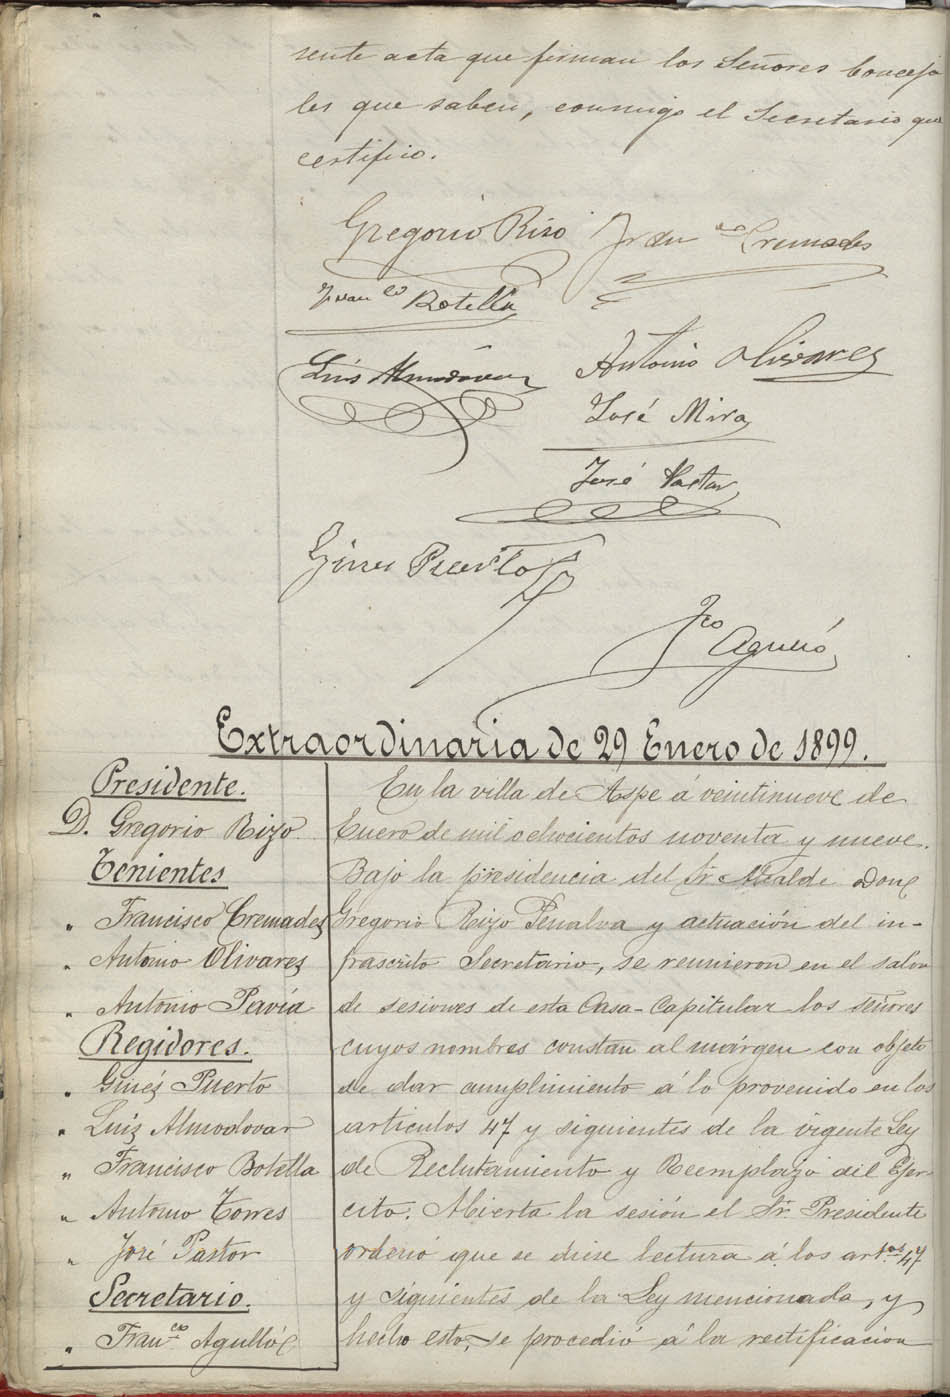 sente acta que firman los Señores Conceja
les que saben, conmigo el Secretario que
certifico.
Gregorio Rizo
Fran co Cremades
Franco Botella
Luis Almodovar
Antonio Olivares
José Mira
José Pastor
Gines Puerto
Fco
Extraordinaria de 29 Enero de 1899.
Presidente.
D. Gregorio Rizo.
Tenientes
" Francisco Cremades
" Antonio Olivares
" Antonio Pavía
Regidores.
" Ginés Puerto
" Luis Almodovar
" Francisco Botella
" Antonio Torres
" José Pastor
Secretario.
" Franco Agulló
En la villa de Aspe á veintinueve de
Enero de mil ochocientos noventa y nueve.
Bajo la presidencia del Sr. Alcalde Don
Gregorio Rizo Penalva y actuación del in-
frascrito Secretario, se reunieron en el salon
de sesiones de esta Casa-Capitular los señores
cuyos nombres constan al márgen con objeto
de dar cumplimiento á lo provenido en los
articulos 47 y siguientes de la vigente Ley
de Reclutamiento y Reemplazo del Ejer-
cito. Abierta la sesión el Sr. Presidente
ordenó que se diese lectura á los artos 47
y siguientes de la Ley mencionada, y
hecho esto, se procedió á la rectificacion